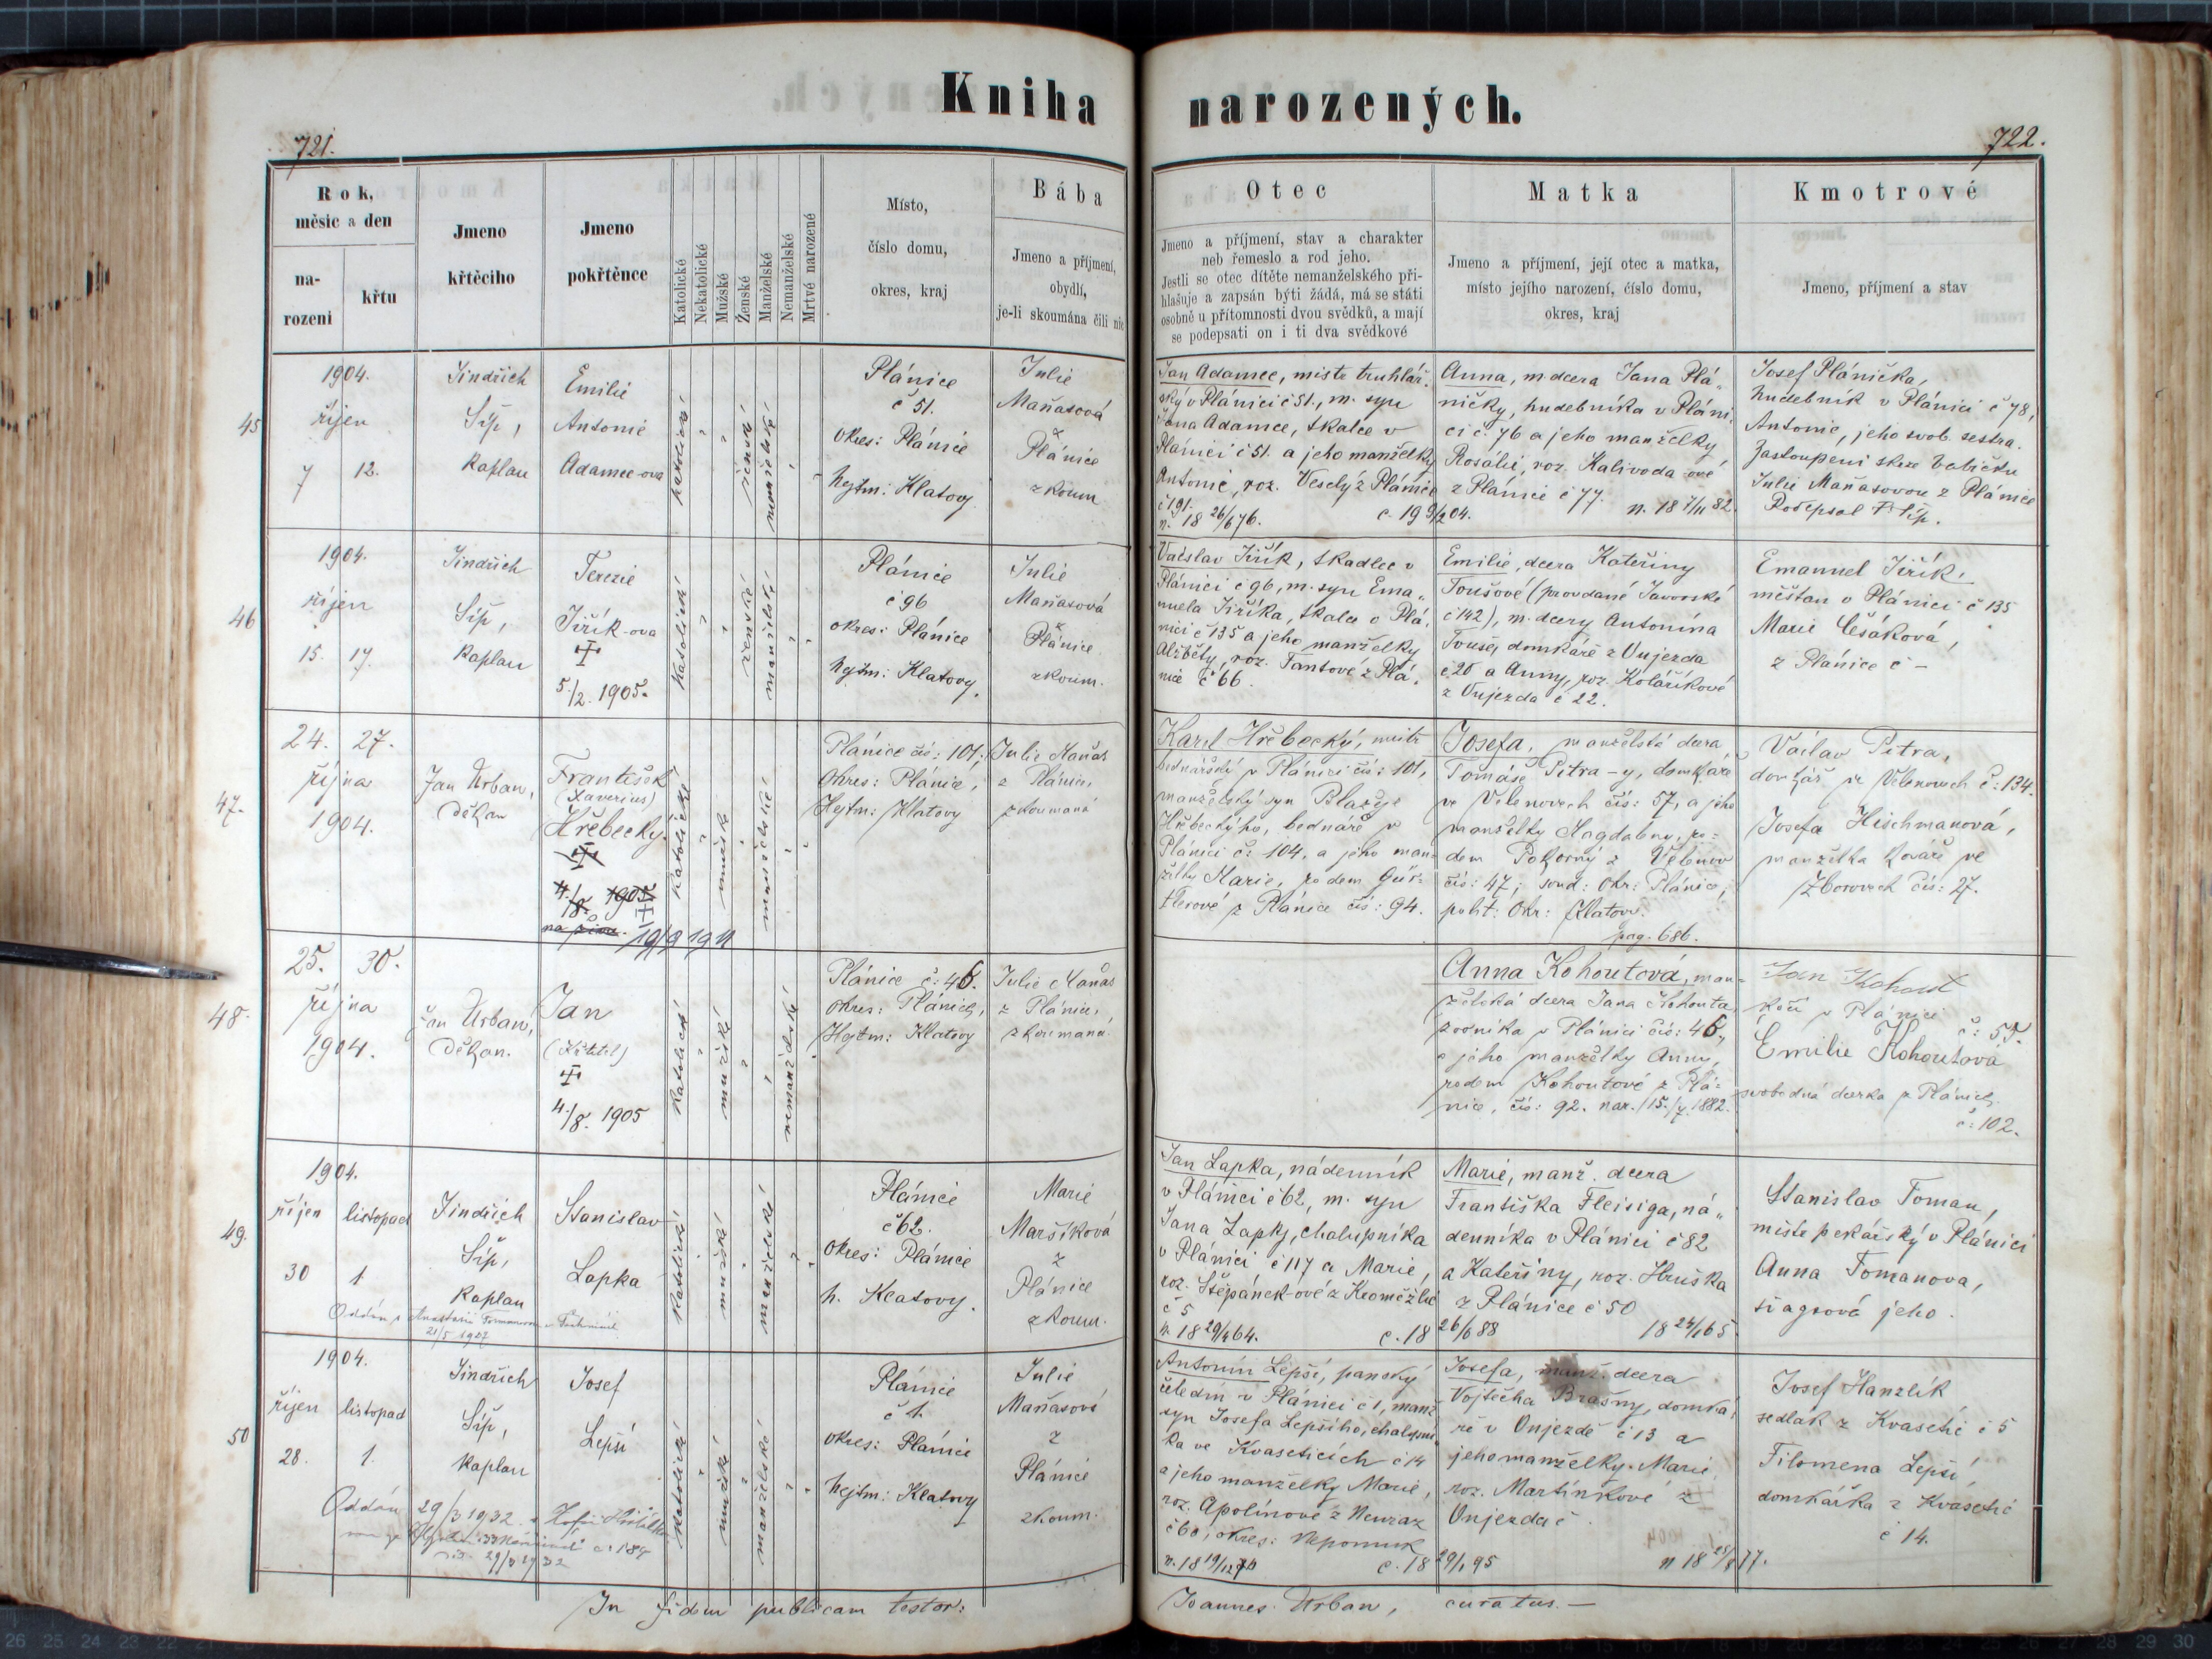 Kniha narozených.
721.
722.
Rok,
měsíc a den
na-
rozeni
křtu
Jmeno
křtěcího
Jmeno
pokřtěnce
Katolické
Nekatolické
Mužské
Ženské
Manželské
Nemanželské
Mrtvé narozené
Místo,
číslo domu,
okres, kraj
Bába
Jmeno a příjmení,
obydlí,
je-li skoumána čili nic
Otec
Jmeno a příjmení, stav a charakter
neb řemeslo a rod jeho.
Jestli se otec dítěte nemanželského při-
hlašuje a zapsán býti žádá, má se státi
osobně u přítomnosti dvou svědků, a mají
se podepsati on i ti dva svědkové
Matka
Jmeno a příjmení, její otec a matka,
místo jejího narození, číslo domu,
okres, kraj
Kmotrové
Jmeno, příjmení a stav
45
1904.
říjen
7 12.
Jindřich
Šíp,
kaplan
Emilie
Antonie
Adamec-ova
katolické
ženské
manželské
Plánice
č 51.
okres: Plánice
hejtm: Klatovy
Julie
Maňasová
z
Plánice
zkoum
Jan Adamec, mistr truhlář-
ský v Plánici č 51., m. syn
Jana Adamce, tkalce v
Plánici č 51. a jeho manželky
Antonie, roz. Veselý z Plánice
č 191.
n. 18 26/6 76. c. 19 9/2 04.
Anna, m dcera Jana Plá„
ničky, hudebníka v Pláni„
ci č. 76 a jeho manželky
Rosálie, roz. Kalivoda-ové
z Plánice č 77. n. 18 7/11 82.
Josef Plánička,
hudebník v Plánici č 78,
Antonie, jeho svob. sestra.
Zastoupeni skrze babičku
Julii Maňasovou z Plánice
Podepsal P. Šíp.
46
1904.
říjen
15. 17.
Jindřich
Šíp,
kaplan
Terezie
Jiřík-ova
5./2. 1905.
katolické
ženské
manželské
Plánice
č 96
okres: Plánice
hejtm: Klatovy.
Julie
Maňasová
z
Plánice
zkoum.
Václav Jiřík, tkadlec v
Plánici č 96, m. syn Ema„
nuela Jiříka, tkalce v Plá„
nici č 135 a jeho manželky
Alžběty, roz. Tantové z Plá„
nice č 66.
Emilie, dcera Kateřiny
Toušové (provdané Javorské
č 142), m. dcery Antonína
Touše, domkáře z Oujezda
č 20 a Anny, roz. Kolaříkové
z Oujezda č 22.
Emanuel Jiřík,
měšťan v Plánici č 135
Marie Češáková,
z Plánice č -
47.
24. 27.
října
1904.
Jan Urban,
děkan
František
(Xaverius)
Hřebecký.
4./8. 1905
19/9 19
katolické
mužské
manželské
Plánice čís: 101;
Okres: Plánice,
Hejtm: Klatovy
Julie Maňas
z Plánice,
zkoumaná
Karel Hřebecký, mistr
bednářský v Plánici čís: 101,
manželský syn Blažeje
Hřebeckýho, bednáře v
Plánici č: 104, a jeho man-
želky Marie, rodem Gür-
tlerové z Plánice čís: 94.
Josefa, manželská dcera
Tomáše Petra-y, domkáře
ve Velenovech čís: 57, a jeho
manželky Magdaleny, ro-
dem Pokorný z Velenov
čís: 47; soud: Okr: Plánice;
polit: Okr: Klatovy.
pag. 686.
Václav Petra,
domkář ve Velenovech č: 134.
Josefa Hischmanová,
manželka kováře ve
Zborovech čís: 27.
48.
25. 30.
října
1904.
Jan Urban,
děkan.
Jan
(Křtitel)
4./8. 1905
katolické
mužské
nemanželské
Plánice č: 46.
Okres: Plánice,
Hejtm: Klatovy
Julie Maňas
z Plánice,
zkoumaná.
Anna Kohoutová, man-
želská dcera Jana Kohouta,
zvoníka v Plánici čís: 46,
a jeho manželky Anny,
rodem Kohoutové z Plá-
nice, čís: 92. nar. 15./7. 1882.
Jan Kohout
kočí v Plánici
č: 55.
Emilie Kohoutová
svobodná dcerka z Plánice
č: 102.
49.
1904.
říjen listopad
30 1.
Jindřich
Šíp,
kaplan
Stanislav
Lapka
Oddán s Anastasií Tomanovou v
21/5 1927
katolické
mužské
manželské
Plánice
č 62.
okres: Plánice
h. Klatovy.
Marie
Maršíková
z
Plánice
zkoum.
Jan Lapka, nádenník
v Plánici č 62, m. syn
Jana Lapky, chalupníka
v Plánici č 117 a Marie,
roz. Štěpánek-ové z Kroměžlic
č 5
n. 18 29/4 64. c. 18 26/6 88
Marie, manž. dcera
Františka Fleisiga, ná„
denníka v Plánici č 82
a Kateřiny, roz. Hruška
z Plánice č 50
18 24/1 65
Stanislav Toman,
mistr pekařský v Plánici
Anna Tomanova,
švagrová jeho.
50
1904.
říjen listopad
28. 1.
Jindřich
Šíp,
kaplan
Josef
Lepší
Oddán 29/3 1932
č. 184
29/3 1932
katolické
mužské
manželské
Plánice
č 1.
okres: Plánice
hejtm: Klatovy
Julie
Maňasová
z
Plánice
zkoum.
Antonín Lepší, panský
čeledín v Plánici č 1, manž
syn Josefa Lepšího, chalupní„
ka ve Kvaseticích č 14
a jeho manželky Marie,
roz. Apolínové z Neuraz
č 60, okres: Nepomuk
n. 18 19/12 70 c. 18 29/1 95
Josefa, manž. dcera
Vojtěcha Brašny, domká„
ře v Oujezdě č 13 a
jeho manželky Marie,
roz. Martínkové z
Oujezda č.
n 18 25/8 77.
Josef Hanzlík
sedlák z Kvasetic č 5
Filomena Lepší,
domkářka z Kvasetic
č 14.
In fidem publicam testor: Joannes Urban, curatus.—